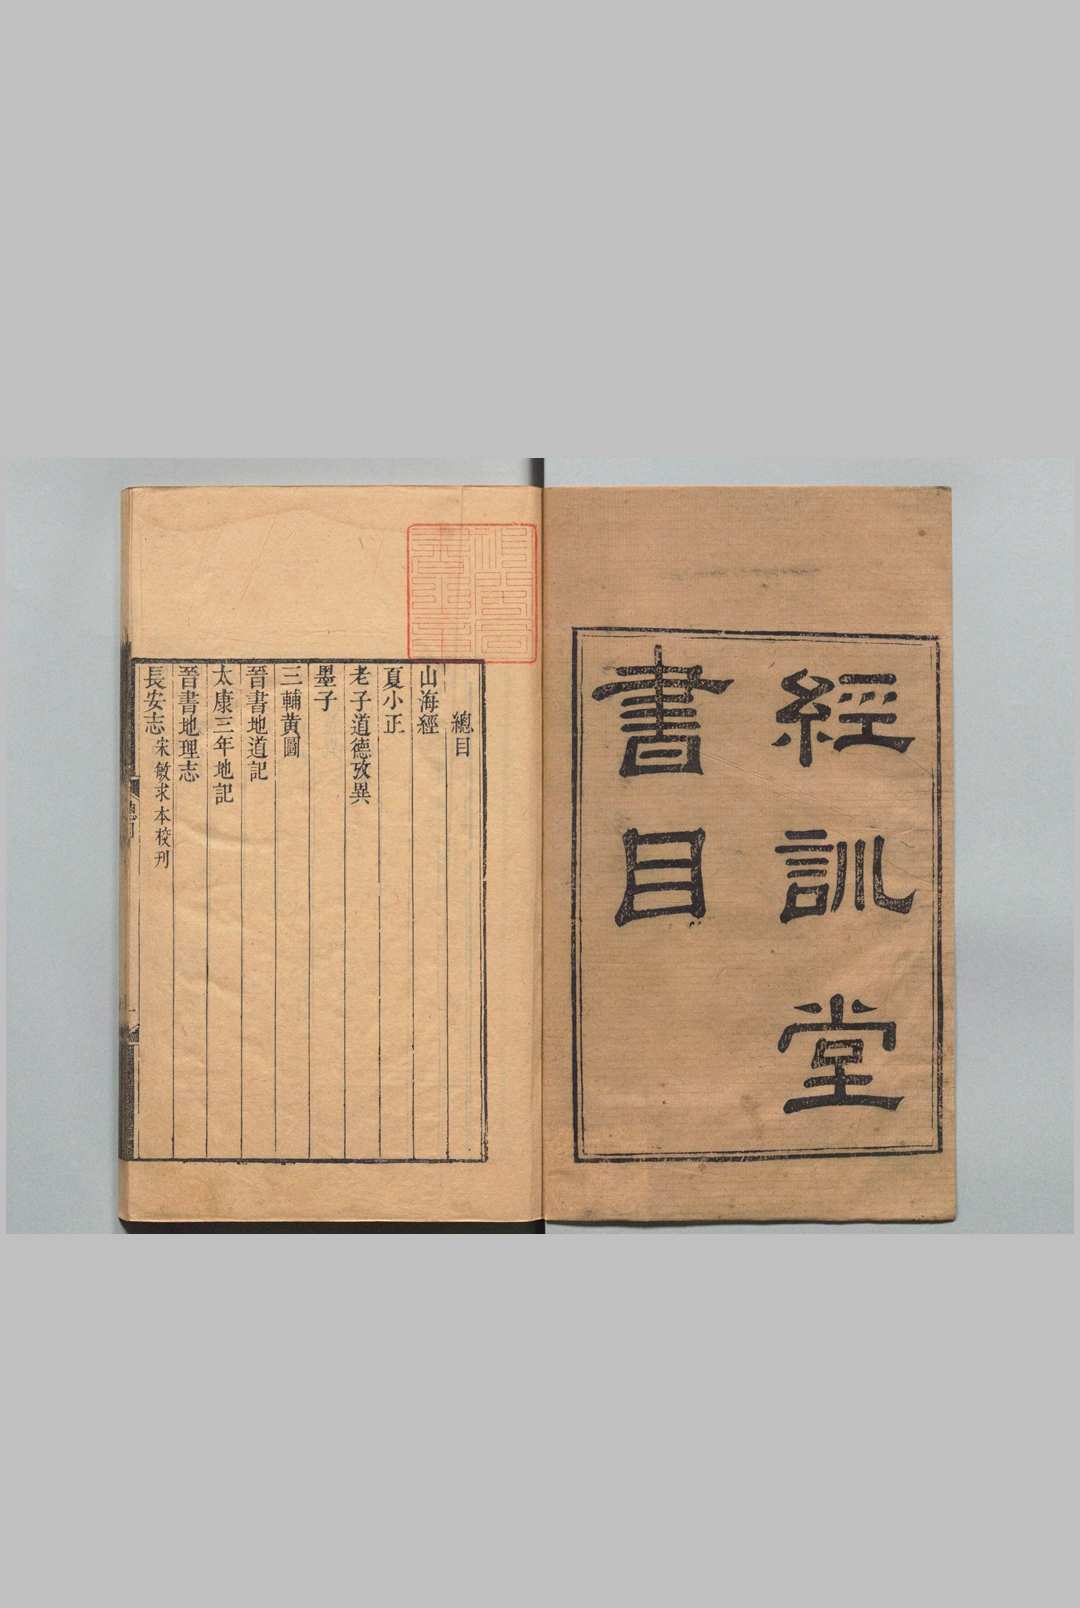 經訓堂
書目
總目
山海經
夏小正
老子道德攷異
墨子
三輔黃圖
晉書地道記
太康三年地記
晉書地理志
長安志 宋敏求本校刋